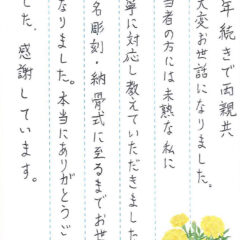 年続きで両親共
大変お世話になりました。
当者の方には未熟な私に
寧に対応し教えていただきました
名彫刻・納骨式に至るまでお世
なりました。本当にありがとうご
した。感謝しています。